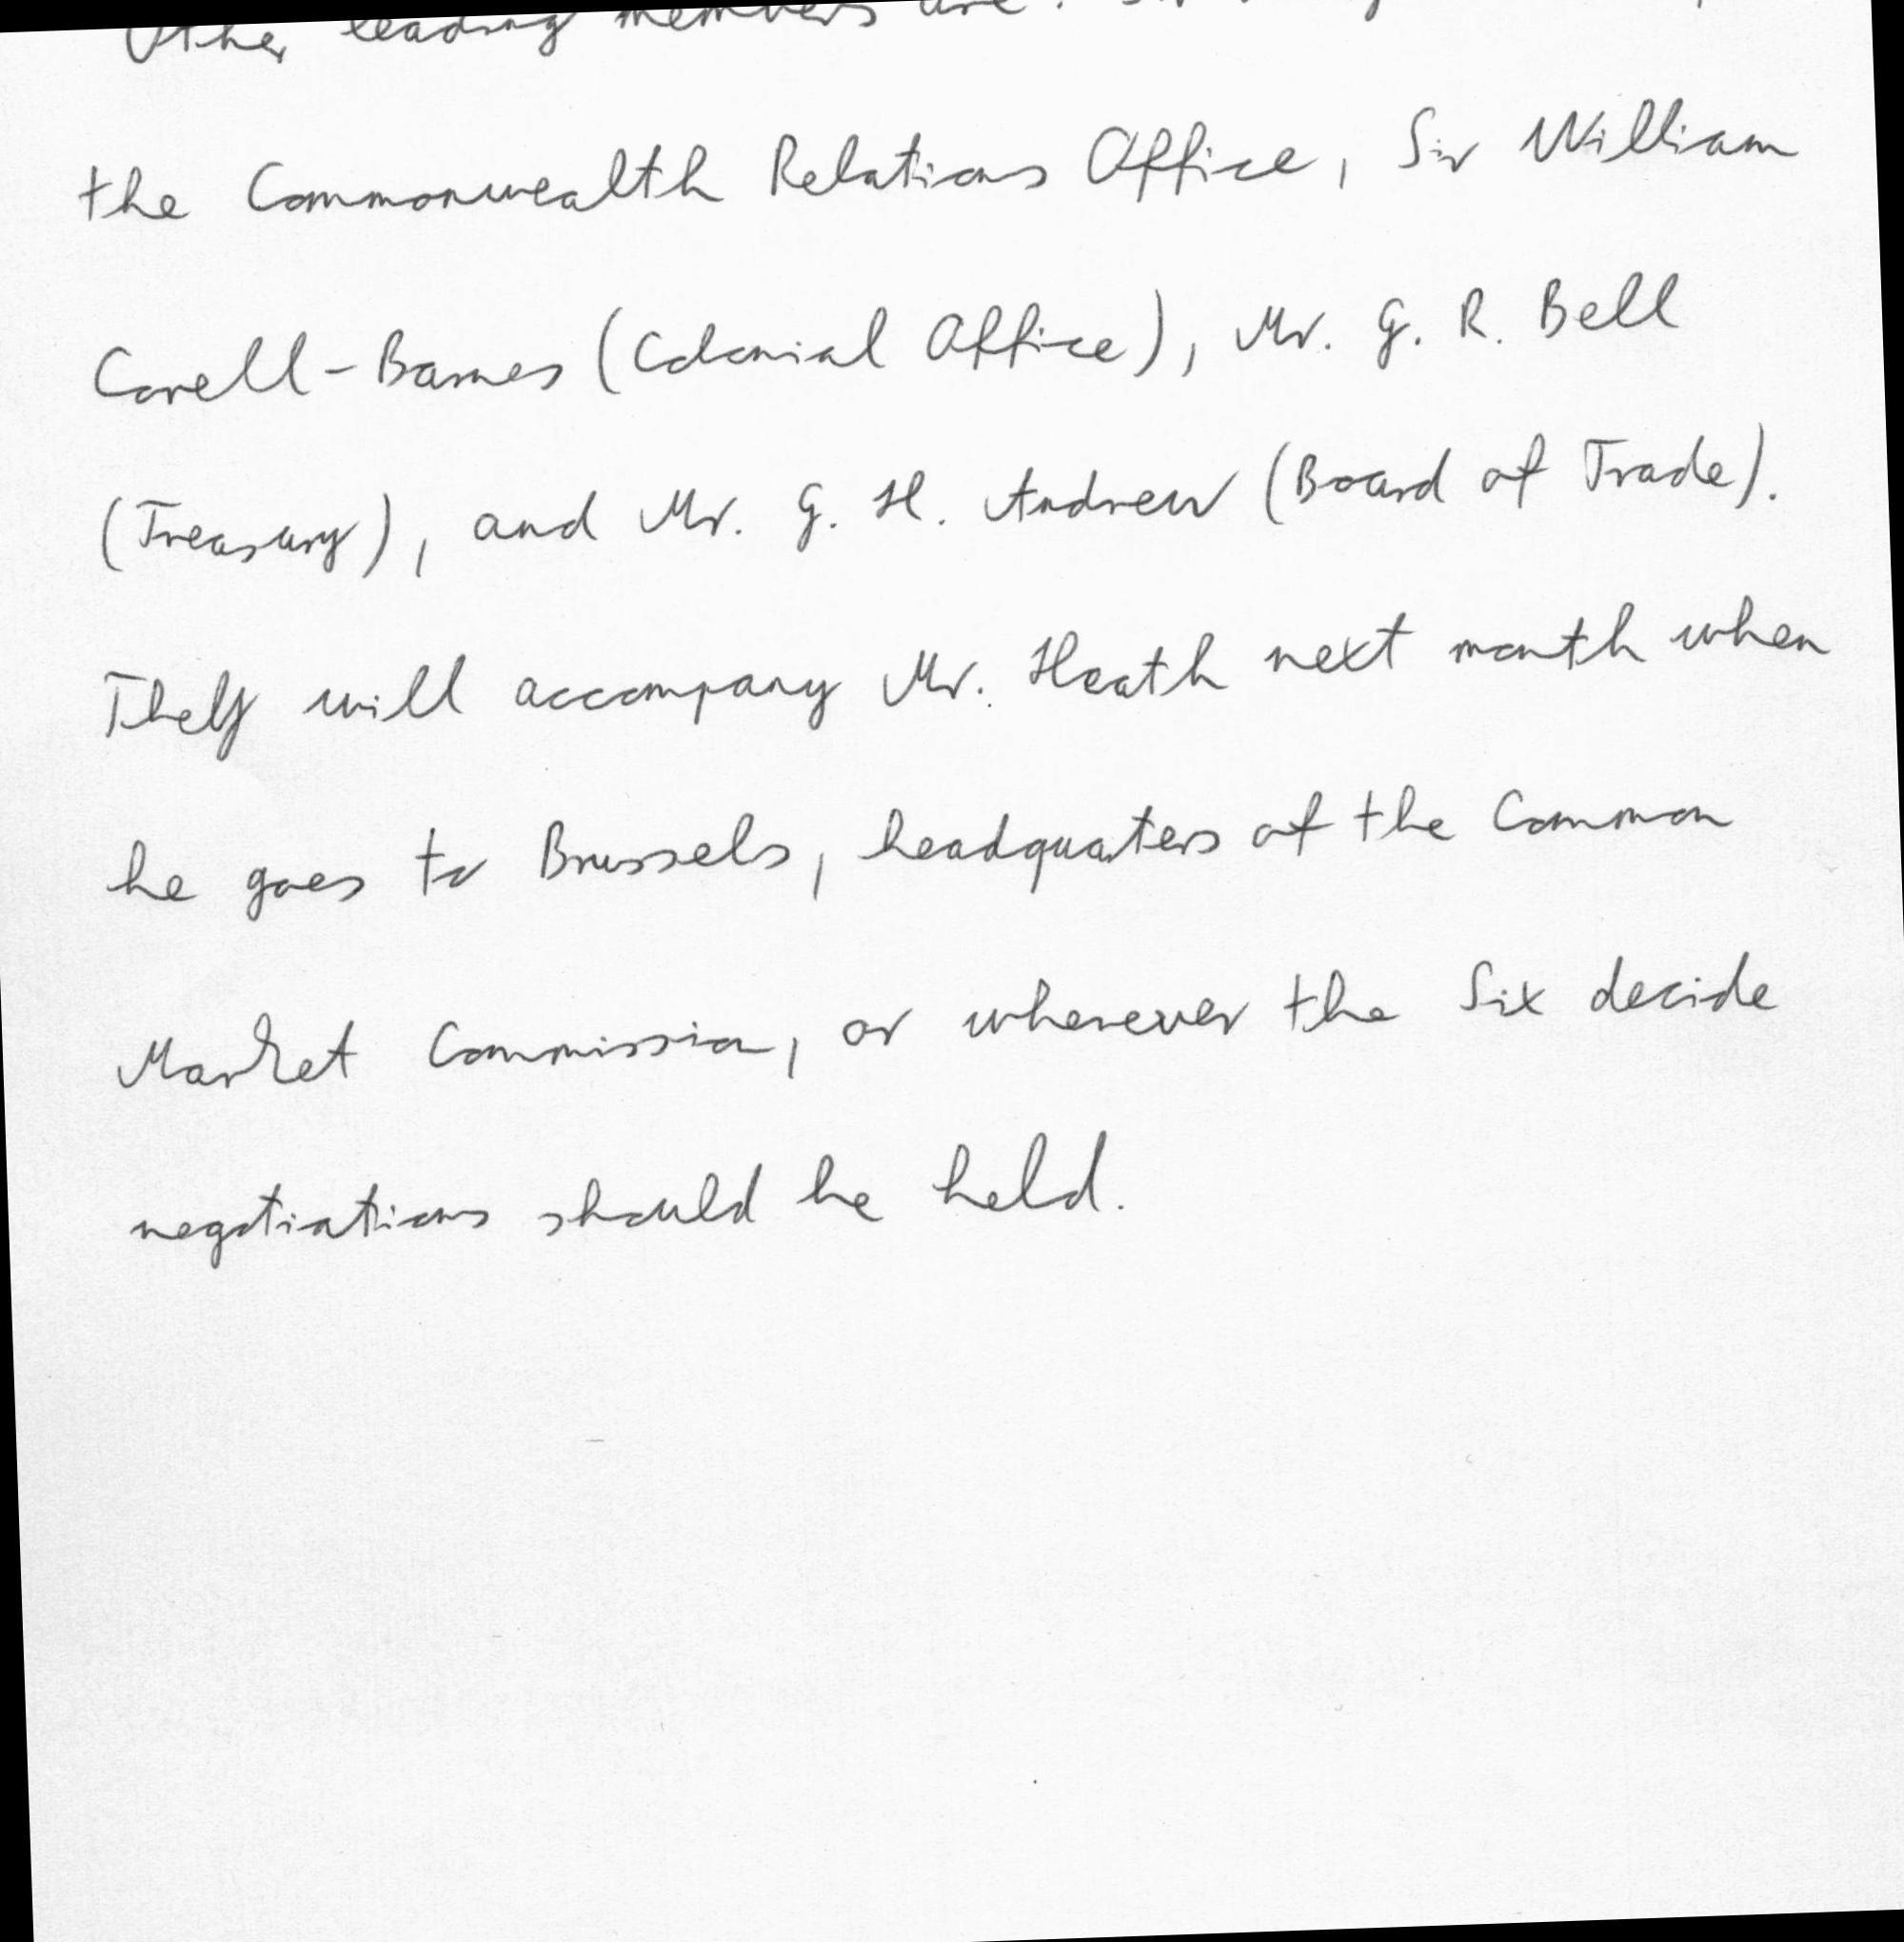 Other leading members are: Sir
the Commonwealth Relations Office, Sir William
Corell-Barnes (Colonial Office), Mr. G. R. Bell
(Treasury), and Mr. G. H. Andrew (Board of Trade).
They will accompany Mr. Heath next month when
he goes to Brussels, headquaters of the Common
Market Commission, or wherever the Six decide
negotiations should be held.